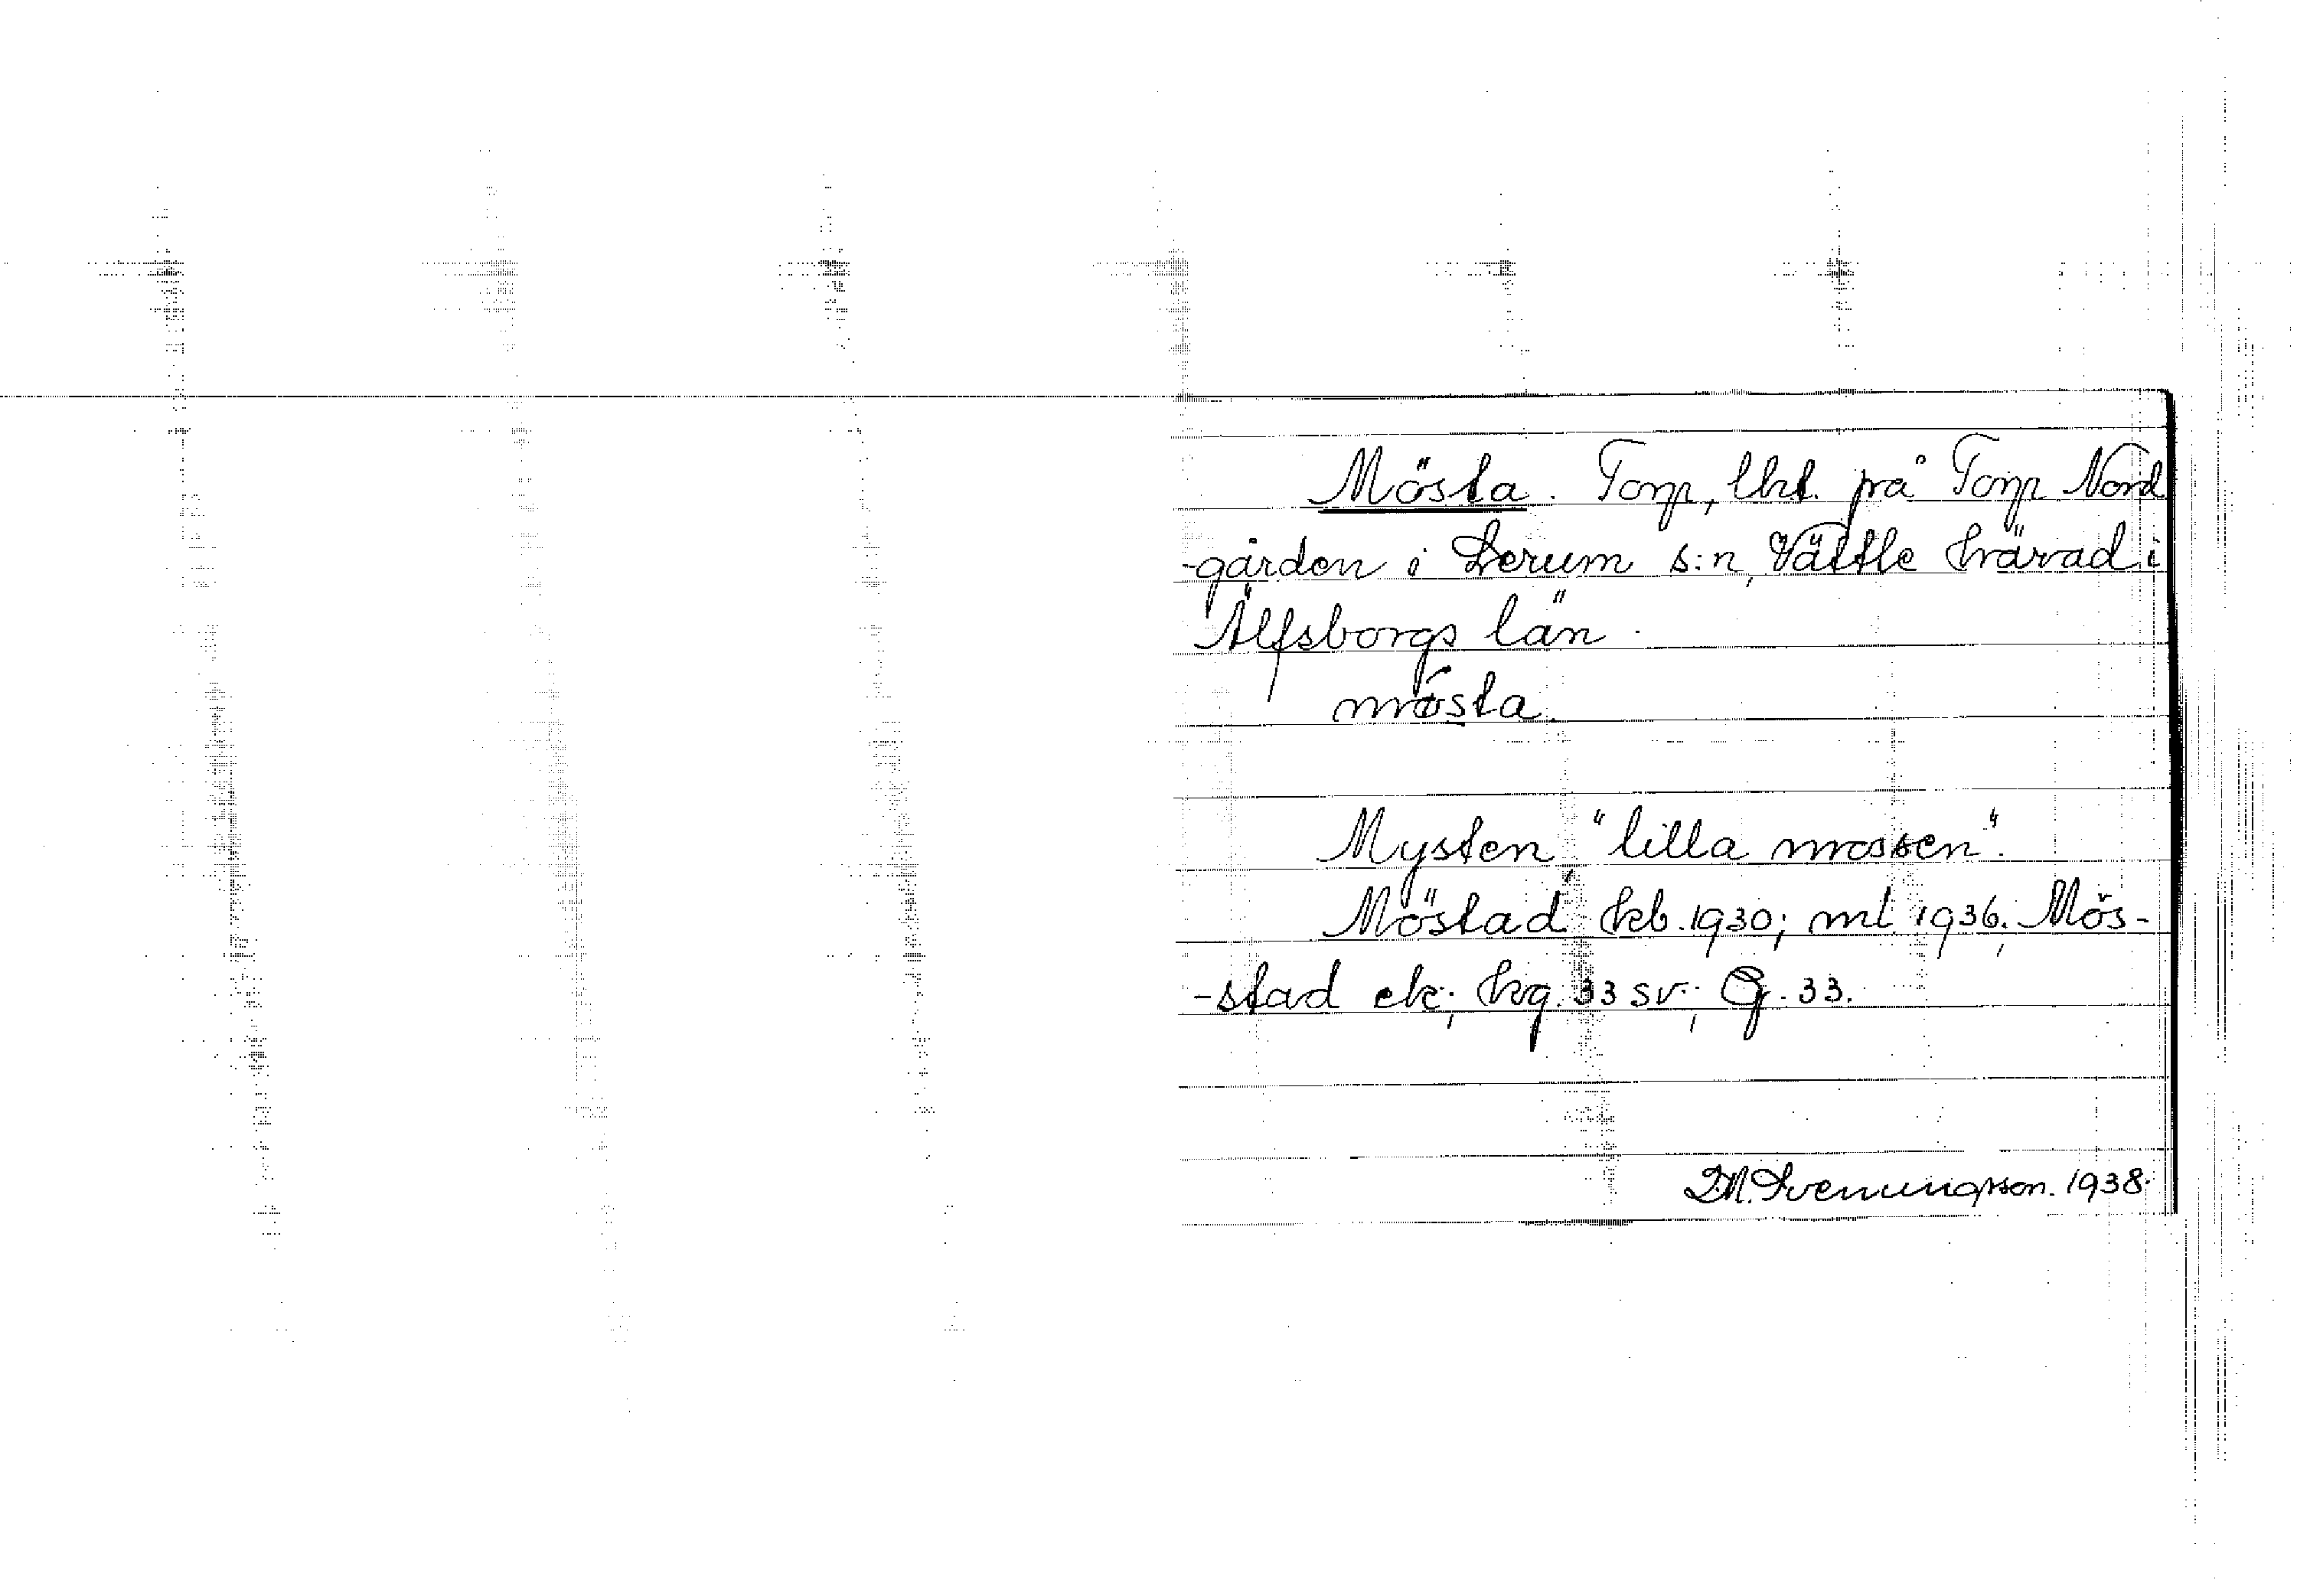 Mösta. Torp, lht. på Torp Nord
-gården i Lerum s:n, Vättle härad i
Älfsborgs län.
mösta.
Mysten, "lilla mossen".
Möstad, hb. 1930; ml. 1936; Mös-
-stad ek; hg. 33 sv.; G. 33.
D.M. Svenungsson. 1938.